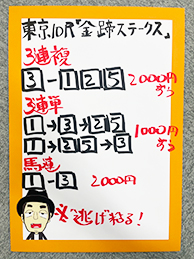 東京10R「金蹄ステークス」
3連複
3-125 2000円
ずつ
3連単
1→3→25
1→25→3 1000円
ずつ
馬連
1-3 2000円
必ず逃げ粘る!